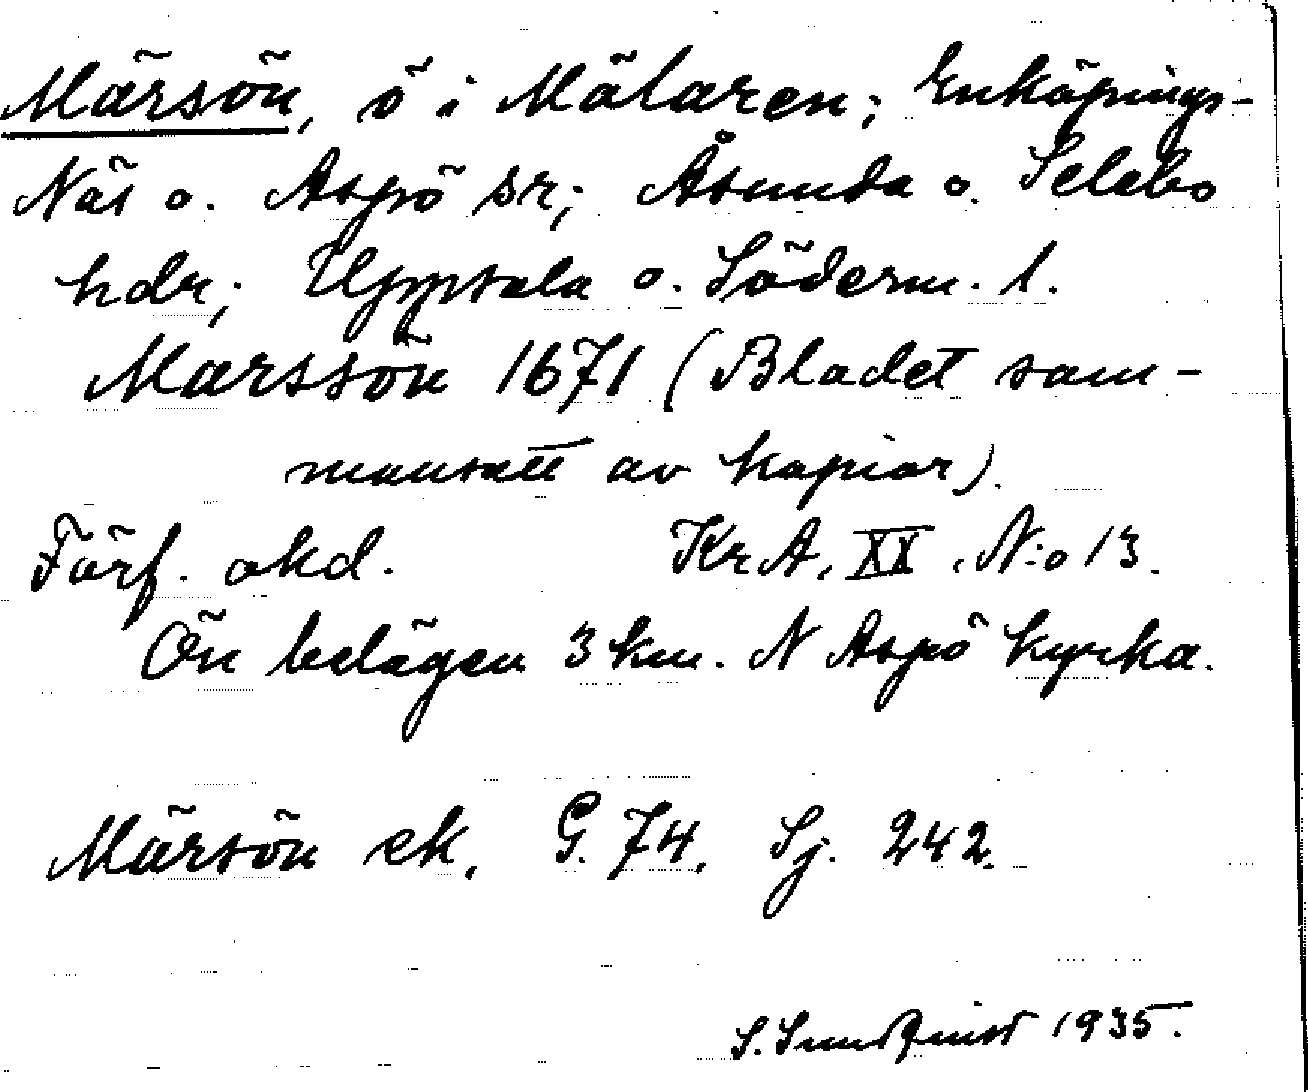 Märsön, ö i Mälaren; Enköpings-
Näs o. Aspö sr; Åsunda o. Selebo
hdr; Uppsala o. Söderm. l.
Marssön 1671 (Bladet sam-
mansatt av kopior).
Förf. okd. KrA, XX, N:o 13.
Ön belägen 3 km. N Aspö kyrka.
Märsön ek. G. 74. Sj. 242.
S. Sundquist 1935.